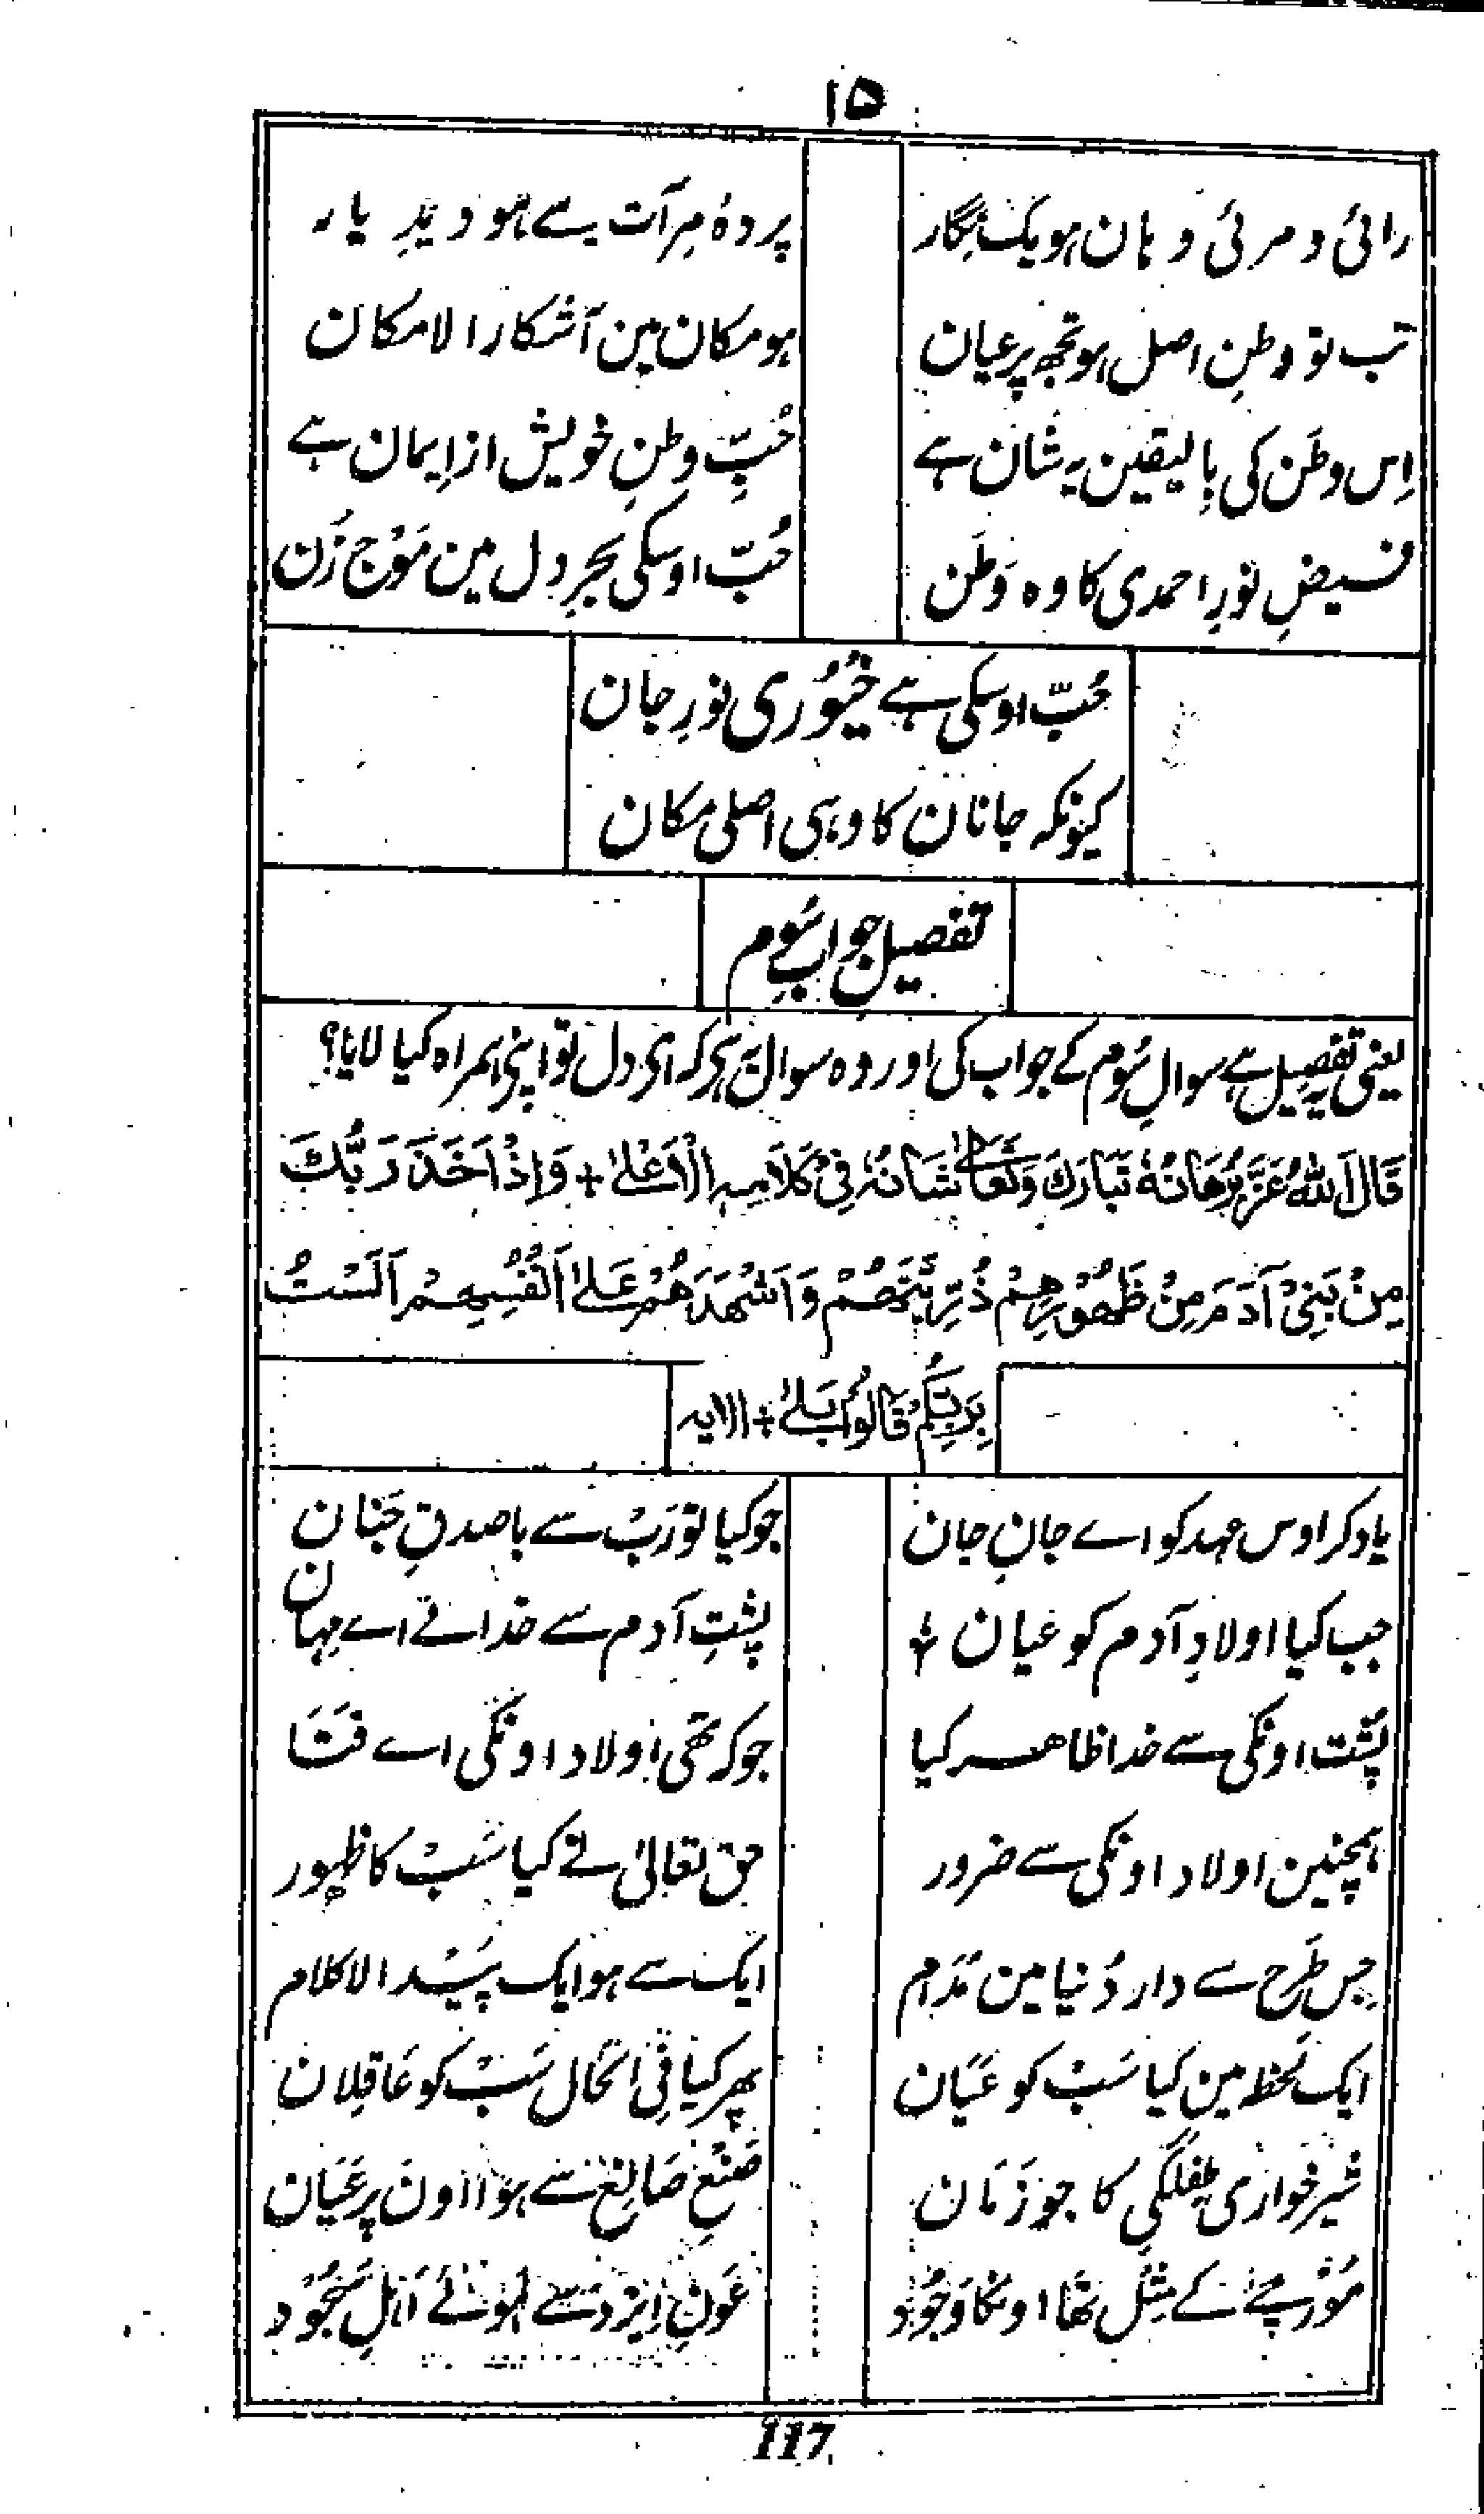 ۱۵
رائی و مرئی وہان ہو یک نگار پردہٗ مِرآت سے ہو دیدِ یار
تب تو وطنِ اصل ہو تجھ پر عیان ہو مکان مین آشکارا لامکان
اِس وطَن کی بِالیقین یہ شان ہے حُبِّ وطنِ خویش از اِیمان ہے
فیضِ نورِ احمدی کا وہ وَطَن حُبّ اوسکی بحرِ دل مین مَوْج زَن
حُبّ اوسکی ہے خیُوری نورِ جان
کیونکہ جانان کا وہی اصلی مکان
تفصیل جوابِ سُوم
یعنی یہ تفصیل ہے سوالِ سُوم کے جواب کی اور وہ سوال یہ ہی کہ ای دل تو اپنی ہمراہ کیا لایا؟
قَالَ اللّٰهُ عَزَّ بُرْهَانُهٗ تَبَارَكَ وَتَعَالٰى شَانُهٗ فِیْ كَلَامِهِ الْاَعْلٰے + وَاِذْ اَخَذَ رَبُّكَ
مِنْ بَنِیْ آدَمَ مِنْ ظُهُوْرِهِمْ ذُرِّيَّتَهُمْ وَاَشْهَدَهُمْ عَلٰے اَنْفُسِهِمْ اَلَسْتُ
بِرَبِّكُمْ قَالُوْا بَلٰے + الایہ
یاد کر اوس عہد کو اے جانِ جان جو کیا تو رَبْ سے با صدقِ جَنان
جب کیا اولادِ آدم کو عیان + پشتِ آدم سے خدا نے اے مہان
پُشت اونکی سے خدا ظاہر کیا جو کہ تھی اولاد اونکی اے فَتَا
ہمچنین اولاد اونکی سے ضرور حق تعالیٰ نے کیا سَبْ کا ظہور
جِس طَرح سے دار دُنیا مین مُدَام ایک سے ہو ایک پَیْدا لا کلام
ایک لحظہ مین کیا سَبْ کو عَیَان پھر کیا فِی الحَال سَبْ کو عَاقِلان
شیر خواری طِفلگی کا جو زَمَان صُنعِ صَانِع سے ہوا اون پر عَیَان
مُوْرِچے کے مِثل تھا اونکا وَجُوْد عَونِ اِیْزد سے ہوئے اَہلِ سُجُوْد
117